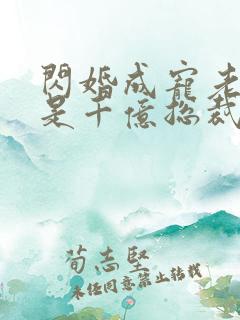 閃婚成寵老
是千億總裁
荀志堅
未經同意禁止轉載